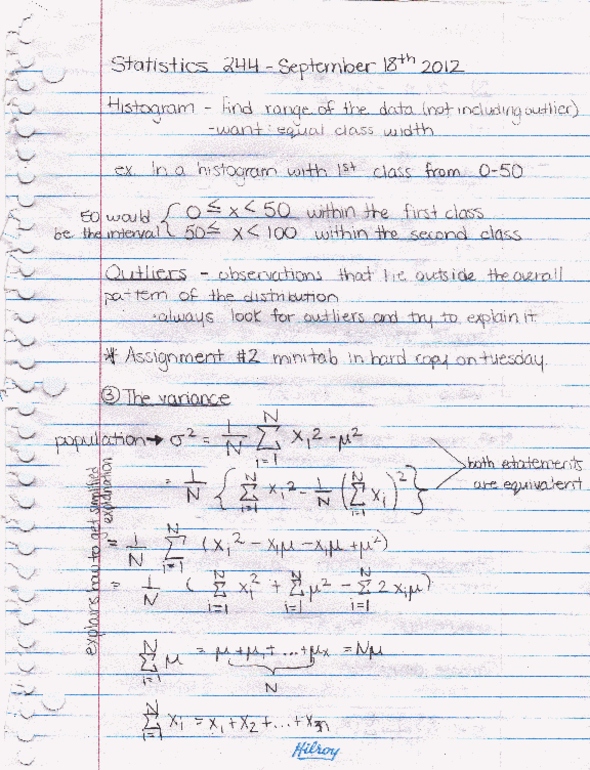 Statistics 244 - September 18th 2012
Histogram - find range of the data (not including outlier)
- want equal class width
ex. In a histogram with 1st class from 0-50
50 would be the interval { 0 ≤ x < 50 within the first class
50 ≤ x < 100 within the second class
Outliers - observations that lie outside the overall
pattern of the distribution
· always look for outliers and try to explain it
* Assignment #2 minitab in hard copy on tuesday.
③ The variance
population → σ² = 1/N Σ_{i=1}^{N} xᵢ² - μ²
= 1/N { Σ_{i=1}^{N} xᵢ² - 1/N ( Σ_{i=1}^{N} xᵢ )² }
both statements are equivalent
explains how to get simplified explanation
= 1/N Σ_{i=1}^{N} (xᵢ² - xᵢμ - xᵢμ + μ²)
= 1/N ( Σ_{i=1}^{N} xᵢ² + Σ_{i=1}^{N} μ² - Σ_{i=1}^{N} 2xᵢμ )
Σ_{i=1}^{N} μ = μ + μ, + ... + μₓ = Nμ
N
Σ_{i=1}^{N} xᵢ = x₁ + x₂ + ... + xₙ
Hilroy